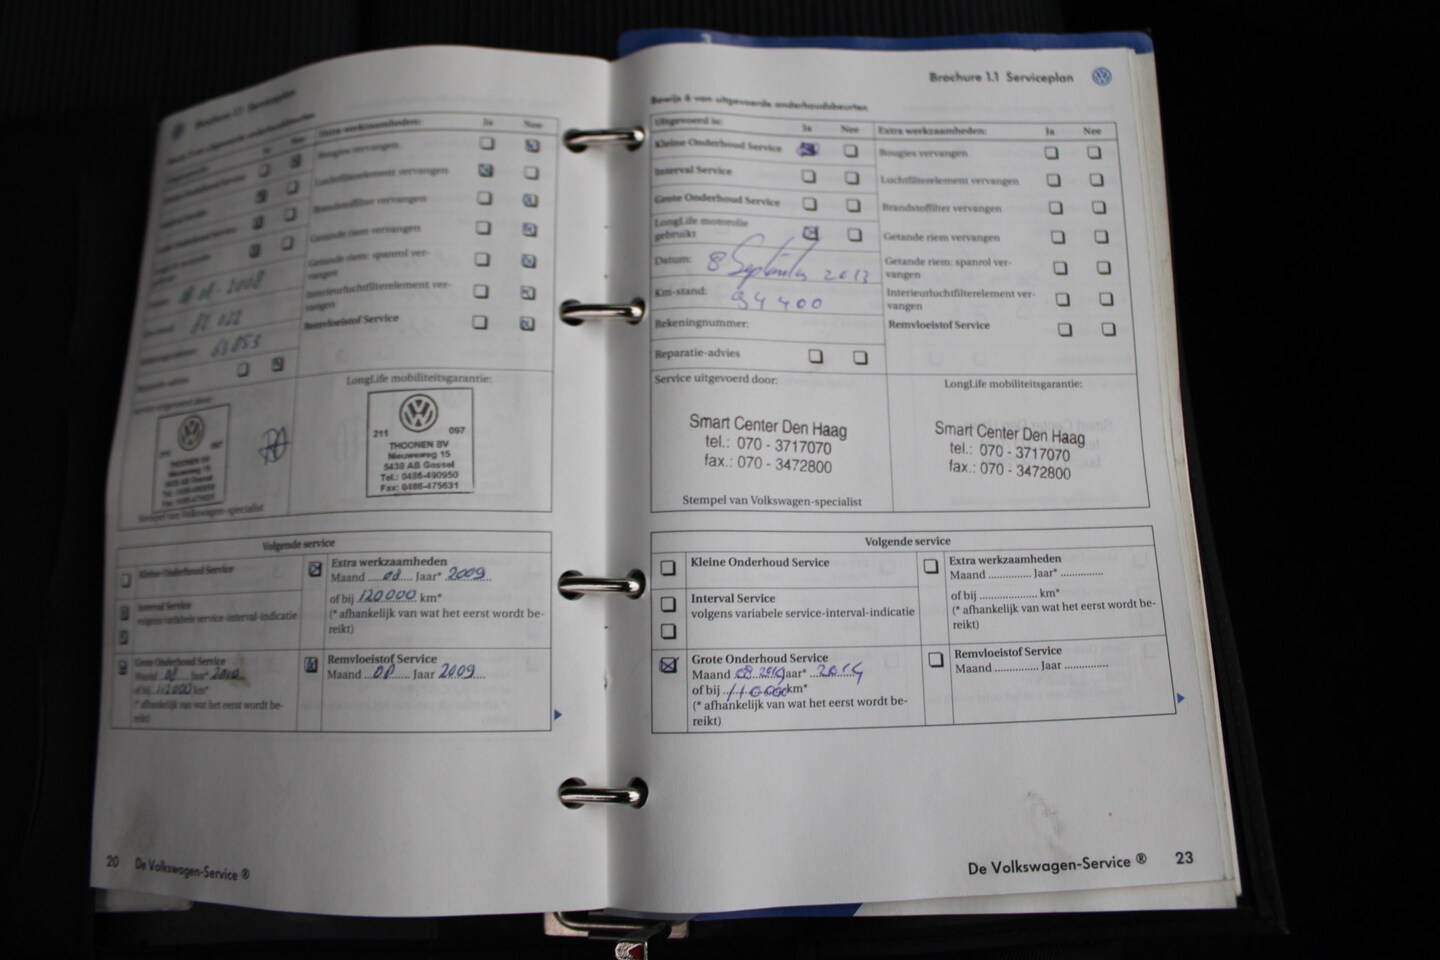 Brochure 1.1 Serviceplan
Extra werkzaamheden:
Ja Nee
Bougies vervangen
Luchtfilterelement vervangen
Brandstoffilter vervangen
Getande riem vervangen
Getande riem: spanrol ver-
vangen
Interieurluchtfilterelement ver-
vangen
Remvloeistof Service
2008
82 022
63853
LongLife mobiliteitsgarantie:
211 097
THOONEN BV
Nieuweweg 15
5438 AB Gassel
Tel.: 0486-490950
Fax: 0486-475631
Stempel van Volkswagen-specialist
Volgende service
Kleine Onderhoud Service
Interval Service
volgens variabele service-interval-indicatie
Grote Onderhoud Service
Maand 08 Jaar* 2010
of bij 112000 km*
(* afhankelijk van wat het eerst wordt be-
reikt)
Extra werkzaamheden
Maand 08 Jaar* 2009
of bij 120000 km*
(* afhankelijk van wat het eerst wordt be-
reikt)
Remvloeistof Service
Maand 08 Jaar 2009
20 De Volkswagen-Service ®
3
Brochure 1.1 Serviceplan
Bewijs 6 van uitgevoerde onderhoudsbeurten
Uitgevoerd is: Ja Nee
Kleine Onderhoud Service
Interval Service
Grote Onderhoud Service
LongLife motorolie
gebruikt
Datum: 8 September 2013
Km-stand: 94 400
Rekeningnummer:
Reparatie-advies
Extra werkzaamheden: Ja Nee
Bougies vervangen
Luchtfilterelement vervangen
Brandstoffilter vervangen
Getande riem vervangen
Getande riem: spanrol ver-
vangen
Interieurluchtfilterelement ver-
vangen
Remvloeistof Service
Service uitgevoerd door:
Smart Center Den Haag
tel.: 070 - 3717070
fax.: 070 - 3472800
Stempel van Volkswagen-specialist
LongLife mobiliteitsgarantie:
Smart Center Den Haag
tel.: 070 - 3717070
fax.: 070 - 3472800
Volgende service
Kleine Onderhoud Service
Interval Service
volgens variabele service-interval-indicatie
Grote Onderhoud Service
Maand 08 2014 Jaar* 2014
of bij 110000 km*
(* afhankelijk van wat het eerst wordt be-
reikt)
Extra werkzaamheden
Maand .............. Jaar* ..............
of bij ................... km*
(* afhankelijk van wat het eerst wordt be-
reikt)
Remvloeistof Service
Maand .............. Jaar ..............
De Volkswagen-Service ® 23